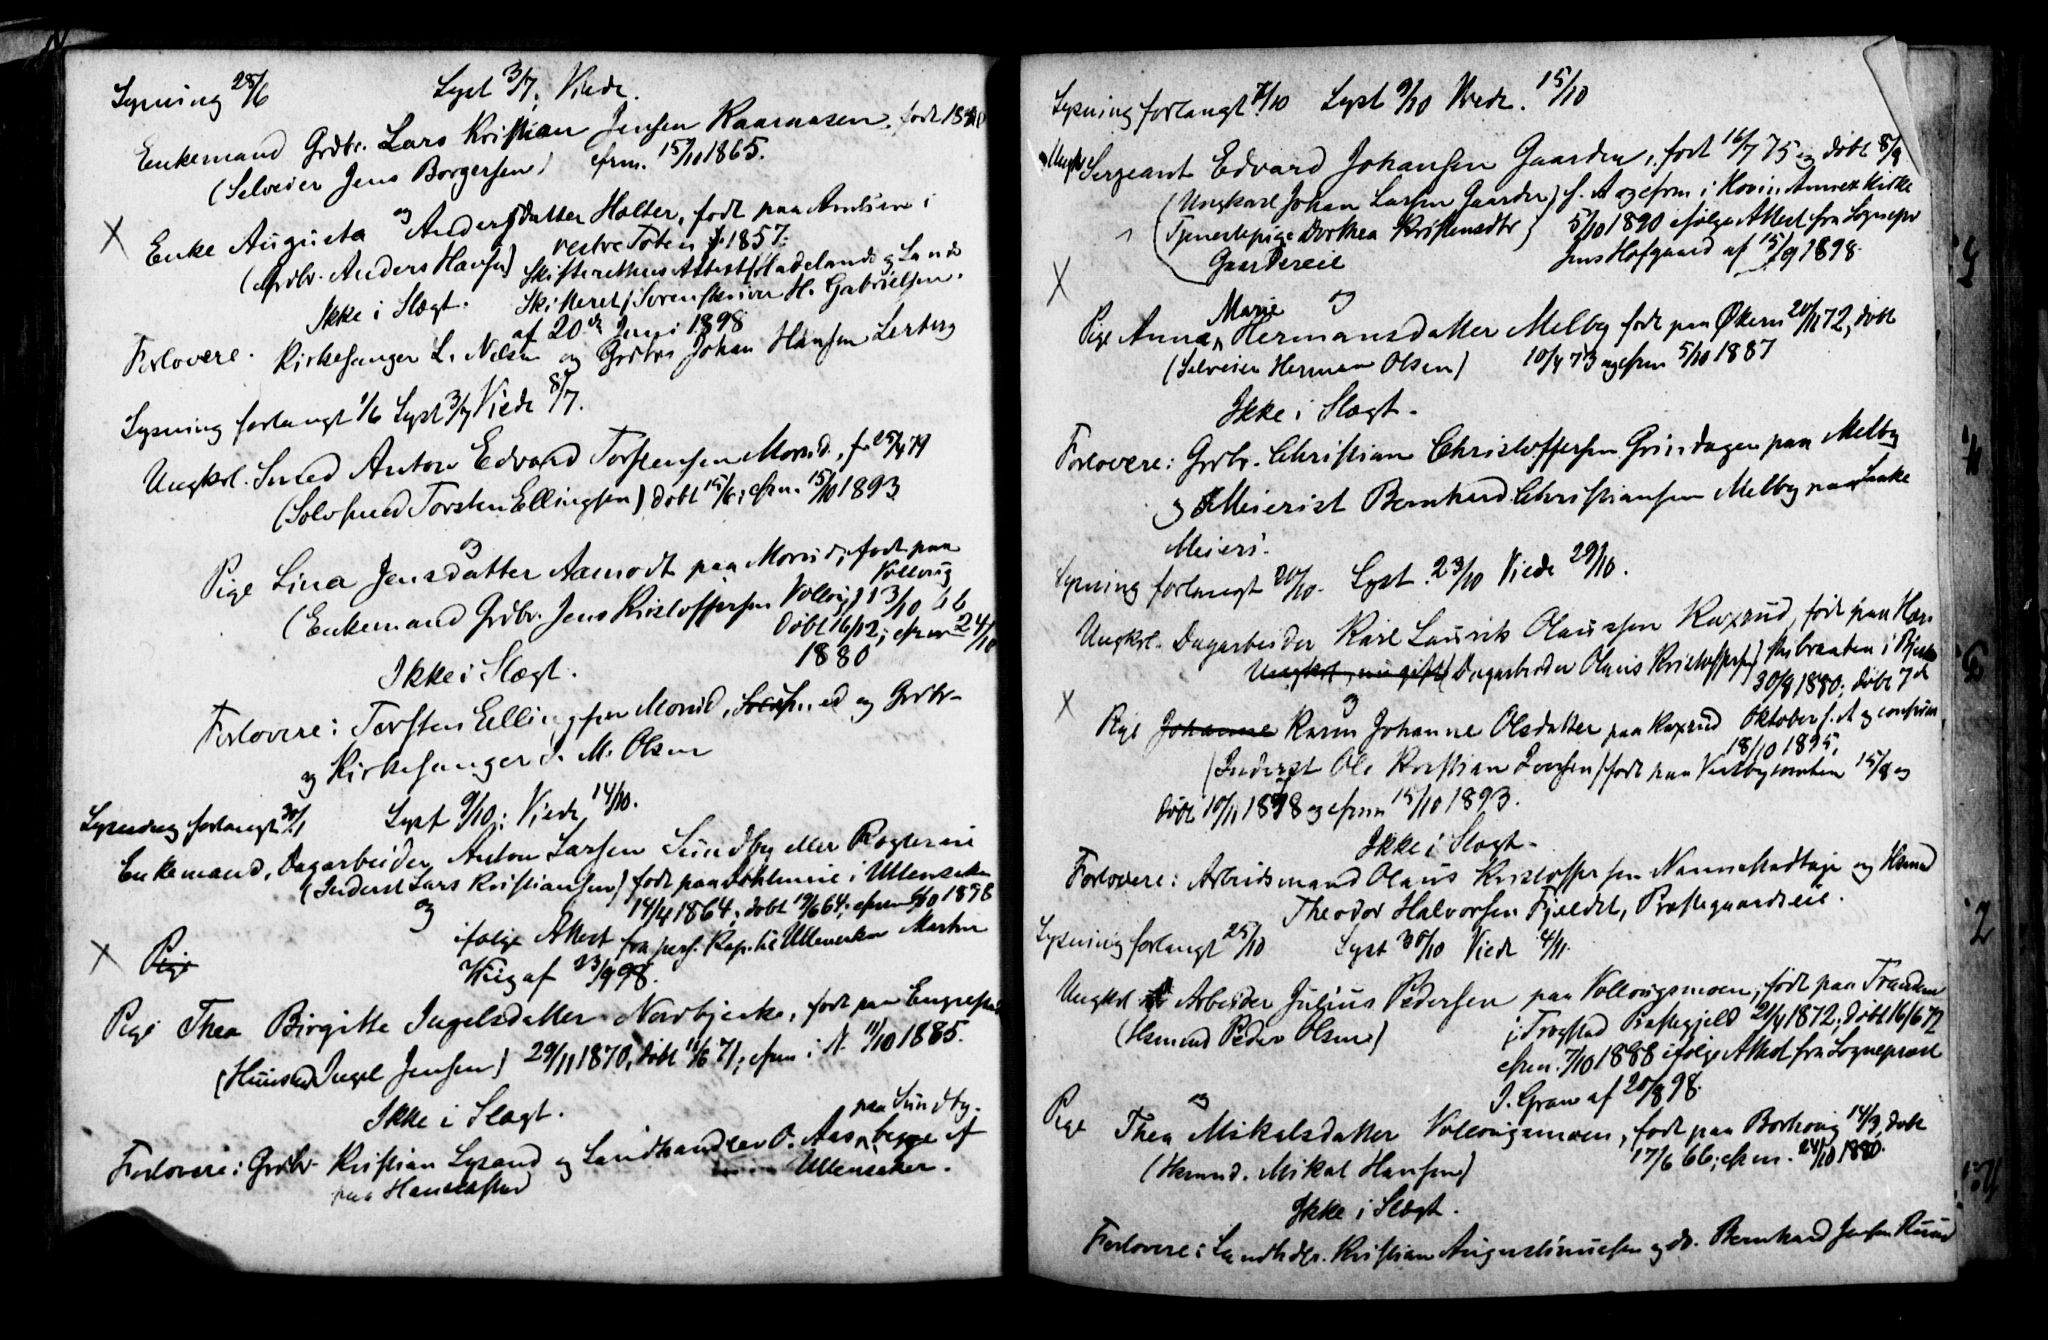 Lysning 28/6 Lyst 3/7; Viede.
Enkemand Grdbr. Lars Kristian Jensen Kaarnaasen, født 18
(Selveier Jens Borgersen) cfrm. 15/10 1865.
og
Enke Augusta Andersdatter Holter, født paa i
vestre Toten 1857.
(Grdbr. Anders Hansen) Skifterettens Attest Hadelands og Lands
Ikke i Slægt. Skifteret, Sorenskriver H. Gabrielsen
af 20de Juni 1898
Forlovere. Kirkesanger L. Nilsen og Grdbr Johan Hansen Lerberg
Lysning forlangt 1/6 Lyst 3/7 Viede 8/7.
Ungkrl. Smed Anton Edvard Torstensen Morud, f. 25/4 79
(Selvsmed Torsten Ellingsen) døbt 15/6; cfrm. 15/10 1893
og
Pige Lina Jensdatter Aamodt paa Morud, født paa
Vollaug
(Enkemand Grdbr. Jens Kristoffersen 13/10 66
døbt 16/12; cfrm 24/10
1880
Ikke i Slægt.
Forlovere: Torsten Ellingsen Morud, Smed og Grdbr-
og Kirkesanger L. M. Olsen
Lysning forlangt 30/ Lyst 9/10; Viede 14/10.
Enkemand, Dagarbeider Anton Larsen Sundby eller
(Inderst Lars Kristiansen) født paa i Ullensaker
14/4 1864; døbt 19/6 64; cfrm 1898
og
ifølge Attest fra pers. Kap. til Ullensaker Martin
Wiig af 23/9 98.
Pige
Pige Thea Birgitte Ingelsdatter Nordbjerke, født paa
(Huusmd Ingel Jensen) 29/11 1870, døbt 11/6 71; cfrm i N. 11/10 1885.
Ikke i Slægt.
paa Sundby.
Forlovere: Grdbr. Kristian Lysand og Landhandler O. Aas, begge af
paa Ullensaker.
Lysning forlangt 7/10 Lyst 9/10 Viede. 15/10
Ungkrl Sergeant Edvard Johansen Gaarder, født 16/7 75 og døbt 8/9
(Ungkarl Johan Larsen Gaarder) h. A og cfrm i Hovin Annexkirke
(Tjenestepige Dorthea Kristensdtr) 5/10 1890 ifølge Attest fra Sognepr
Gaardereie Jens Hofgaard af 15/9 1898.
og
Marie
Pige Anna Hermansdatter Melby født paa Økern 20/12 72, døbt
(Selveier Herman Olsen) 10/4 73 og cfrm 5/10 1887
Ikke i Slægt.
Forlovere: Grdbr. Christian Christoffersen Grindagen paa Melby
og Meierist Bernhard Christiansen Melby paa
Meieri.
Lysning forlangt 20/10. Lyst 23/10 Viede 29/10.
Ungkrl. Dagarbeider Karl Laurits Olaussen Raxrud, født paa
Ungkrl, nu gift (Dagarbeider Olaus Kristoffersen) i Bjerke
30/9 1880; døbt 7de
og
Pige Johanne Karen Johanne Olsdatter paa Raxrud Oktober s. A og confirm.
18/10 1895.
(Inderst Ole Kristian Iversen) født paa 15/8 og
døbt 10/11 1878 og cfrm 15/10 1893.
Ikke i Slægt.
Forlovere: Arbeidsmand Olaus Kristoffersen Nannestadhaje og Hsmd
Theodor Halvorsen Fjeldet, Præstegaardseie.
Lysning forlangt 25/10 Lyst 30/10 Viede 4/11.
Ungkrl Arbeider Julius Pedersen paa Vollaugsmoen, født paa Trandem
(Hsmand Peder Olsen) i Trøgstad Præstegjeld 21/4 1872; døbt 16/6 72
cfrm. 7/10 1888 ifølge Attest fra Sogneprest
J. Gram af 20/8 98.
og
Pige Thea Mikalsdatter Vollaugsmoen, født paa 14/3, døbt
(Hsmnd. Mikal Hansen) 17/6 66; cfrm. 24/10 1880.
Ikke i Slægt.
Forlovere: Landhdlr. Kristian Augustinusen og do. Bernhard Jensen Ruud